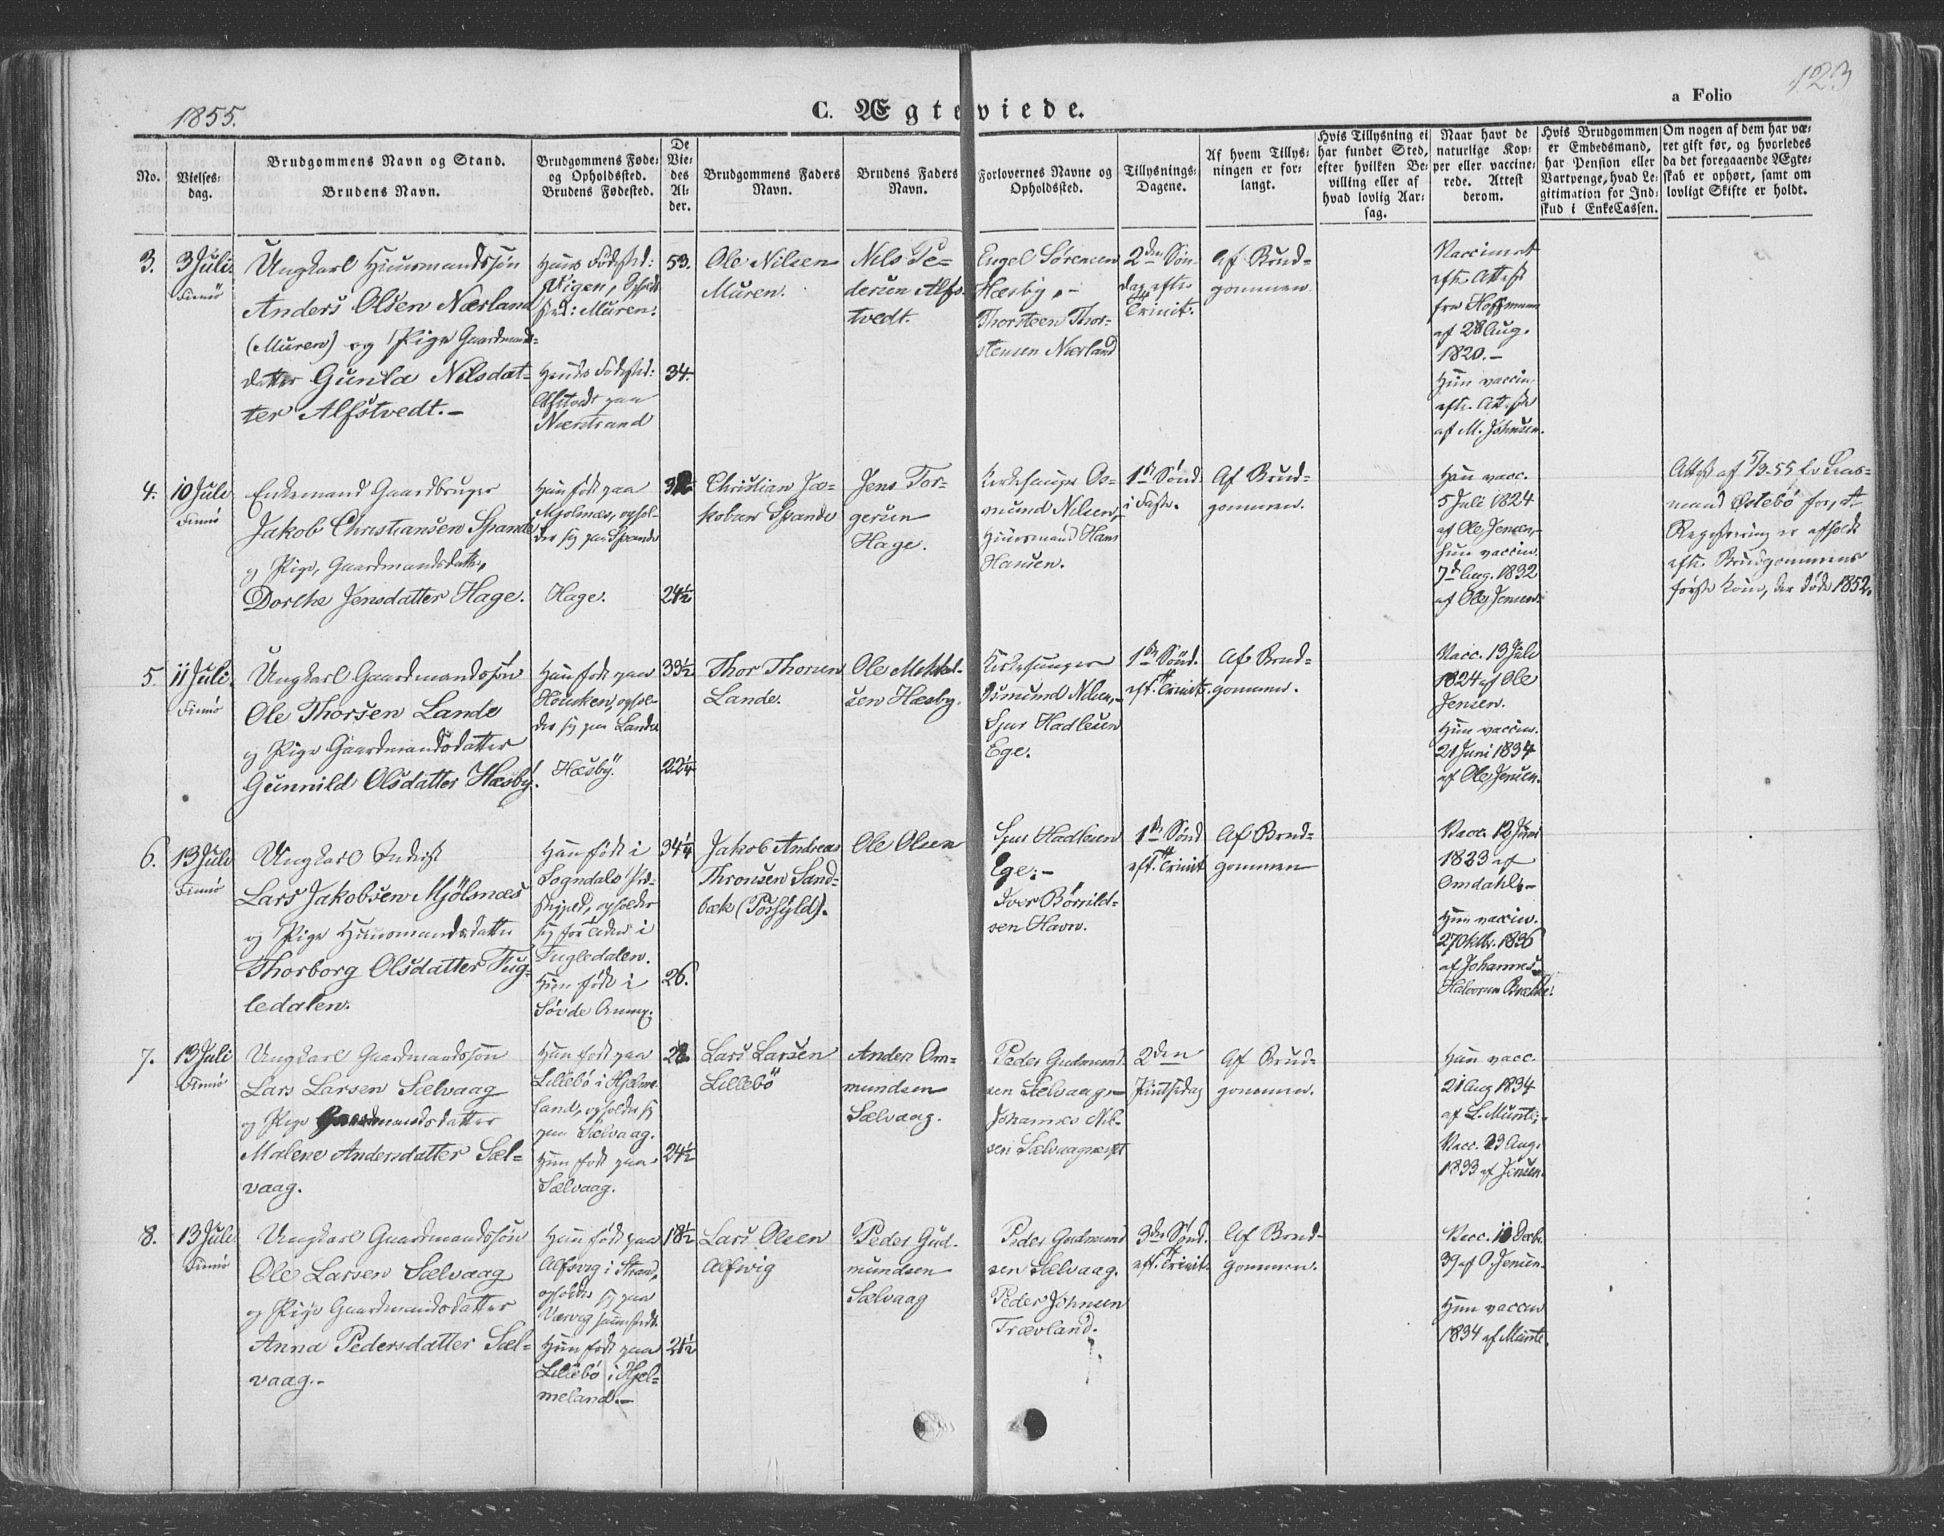 1855.
C. Ægteviede.
a Folio
123
No.
Vielses-
dag.
Brudgommens Navn og Stand.
Brudens Navn.
Brudgommens Føde-
og Opholdssted.
Brudens Fødested.
De
Vie-
des
Al-
der.
Brudgommens Faders
Navn.
Brudens Faders
Navn.
Forlovernes Navne og
Opholdssted.
Tillysnings-
Dagene.
Af hvem Tillys-
ningen er for-
langt.
Hvis Tillysning ei
har fundet Sted,
efter hvilken Be-
villing eller af
hvad lovlig Aar-
sag.
Naar havt de
naturlige Kop-
per eller vaccine-
rede. Attest
derom.
Hvis Brudgommen
er Embedsmand,
har Pension eller
Vartpenge, hvad Le-
gitimation for Ind-
skud i EnkeCassen.
Om nogen af dem har væ-
ret gift før, og hvorledes
da det foregaaende Ægte-
skab er ophørt, samt om
lovligt Skifte er holdt.
3.
3 Juli
Finnö
Ungkarl Huusmandssøn
Anders Olsen Nærland
(Muren) og Pige Gaardmands-
datter Gunla Nilsdat-
ter Alfstvedt.-
Hans Fødested:
Vigen, Opholds
sted: Muren.
Hendes Fødested:
Alfstvedt paa
Nærstrand
53.
34.
Ole Nilsen
Muren.
Nils Pe-
dersen Alfs-
tvedt.
Engel Sørensen
Hæsby,-
Thorsteen Thor-
stensen Nærland
2den Søn-
dag efter
Trinit.
Af Brud-
gommen.
Vaccineret
efter Attest
fra Hoffmann
af 28 Aug.
1820.-
Hun vaccin.
eft. Attest
af M. Johnsen.
4.
10 Juli
Finnö
Enkemand Gaardbruger
Jakob Christiansen Spande
og Pige, Gaardmandsdatter,
Dorthe Jensdatter Hage.
Han født paa
Mjølsnæs, ophol-
der sig paa Spande
Hage.
32
24½
Christian Ja-
kobsen Spande
Jens Tor-
gersen
Hage.
Kirkesanger Os-
mund Nilsen,
Huusmand Hans
Hansen.
1ste Sønd.
i Faste.
Af Brud-
gommen.
Han vacc.
5 Juli 1824
af Ole Jensen,
hun vaccin.
7d Aug. 1832
af Ole Jensen.
Attest af 5/3-55 fra Lens-
mand Østebö for, at
Registrering er afholdt
efter Brudgommens
første Kone, der døde 1852.
5.
11 Juli.
Finnö
Ungkarl Gaardmandssøn
Ole Thorsen Lande
og Pige Gaardmandsdatter
Gunnild Olsdatter Hæsby.
Han født paa
Housken, ophol-
der sig paa Lande
Hæsby.
33½
22¼
Thor Thorsen
Lande.
Ole Mikkel-
sen Hæsby.
Kirkesanger
Osmund Nilsen,-
Sjur Hadlesen
Ege.
1ste Sønd.
eft. Trinit.
Af Brud-
gommen.
Vacc. 13 Juli
1824 af Ole
Jensen.
Hun vaccin.
21 Juni 1834
af Ole Jensen.
6.
13 Juli
Finnö
Ungkarl Inderst
Lars Jakobsen Mjölsnæs
og Pige Huusmandsdatter
Thorborg Olsdatter Fug-
ledalen.
Han født i
Sogndals Præ-
stegjeld, opholder
sig for Tiden i
Fugledalen.
Hun født i
Søvde Annex.
34¼
26.
Jakob Andreas
Thronsen Sand-
bæk
Ole Olsen
Sjur Hadlesen
Ege.-
Iver Børrild-
sen Havn.
1ste Sønd
eft. Trinit.
Af Brud-
gommen
Vacc. 12 Juni
1823 af
Omdahl.-
Hun vaccin.
27 Oktbr. 1836
af Johannes
Halvorsen
7.
13 Juli
Finnö
Ungkarl Gaardmandssøn
Lars Larsen Sælvaag
og Pige Gaardmandsdatter
Malene Andersdatter Sæl-
vaag.
Han født paa
Lillebö i Hjelme-
land, opholder sig
paa Sælvaag.
Hun født paa
Sælvaag.
28
24½
Lars Larsen
Lillebö
Anders Om-
mundsen
Sælvaag.
Peder Gudmund-
sen Sælvaag,-
Johannes Nil-
sen
2den
Pintsedag
Af Brud-
gommen.
Han vacc.
21 Aug 1834
af L. Munte,-
Vacc. 23 Aug.
1833 af Jensen.
8.
13 Juli
Finnö
Ungkarl Gaardmandssøn
Ole Larsen Sælvaag
og Pige Gaardmandsdatter
Anna Pedersdatter Sæl-
vaag.-
Han født paa
Alfsvig i Strand,
opholder sig paa
Hun født paa
Lillebö i Hjel-
meland.-
18½
21½
Lars Olsen
Alfvig
Peder Gud-
mundsen
Sælvaag
Peder Gudmund
sen Sælvaag.
Peder Johnsen
Trævland.
3die Sønd.
eft. Trinit.
Af Brud-
gommen.
Vacc. 11 Decbr.
39 af O. Jensen.
Hun vaccin
1834 af Munte.